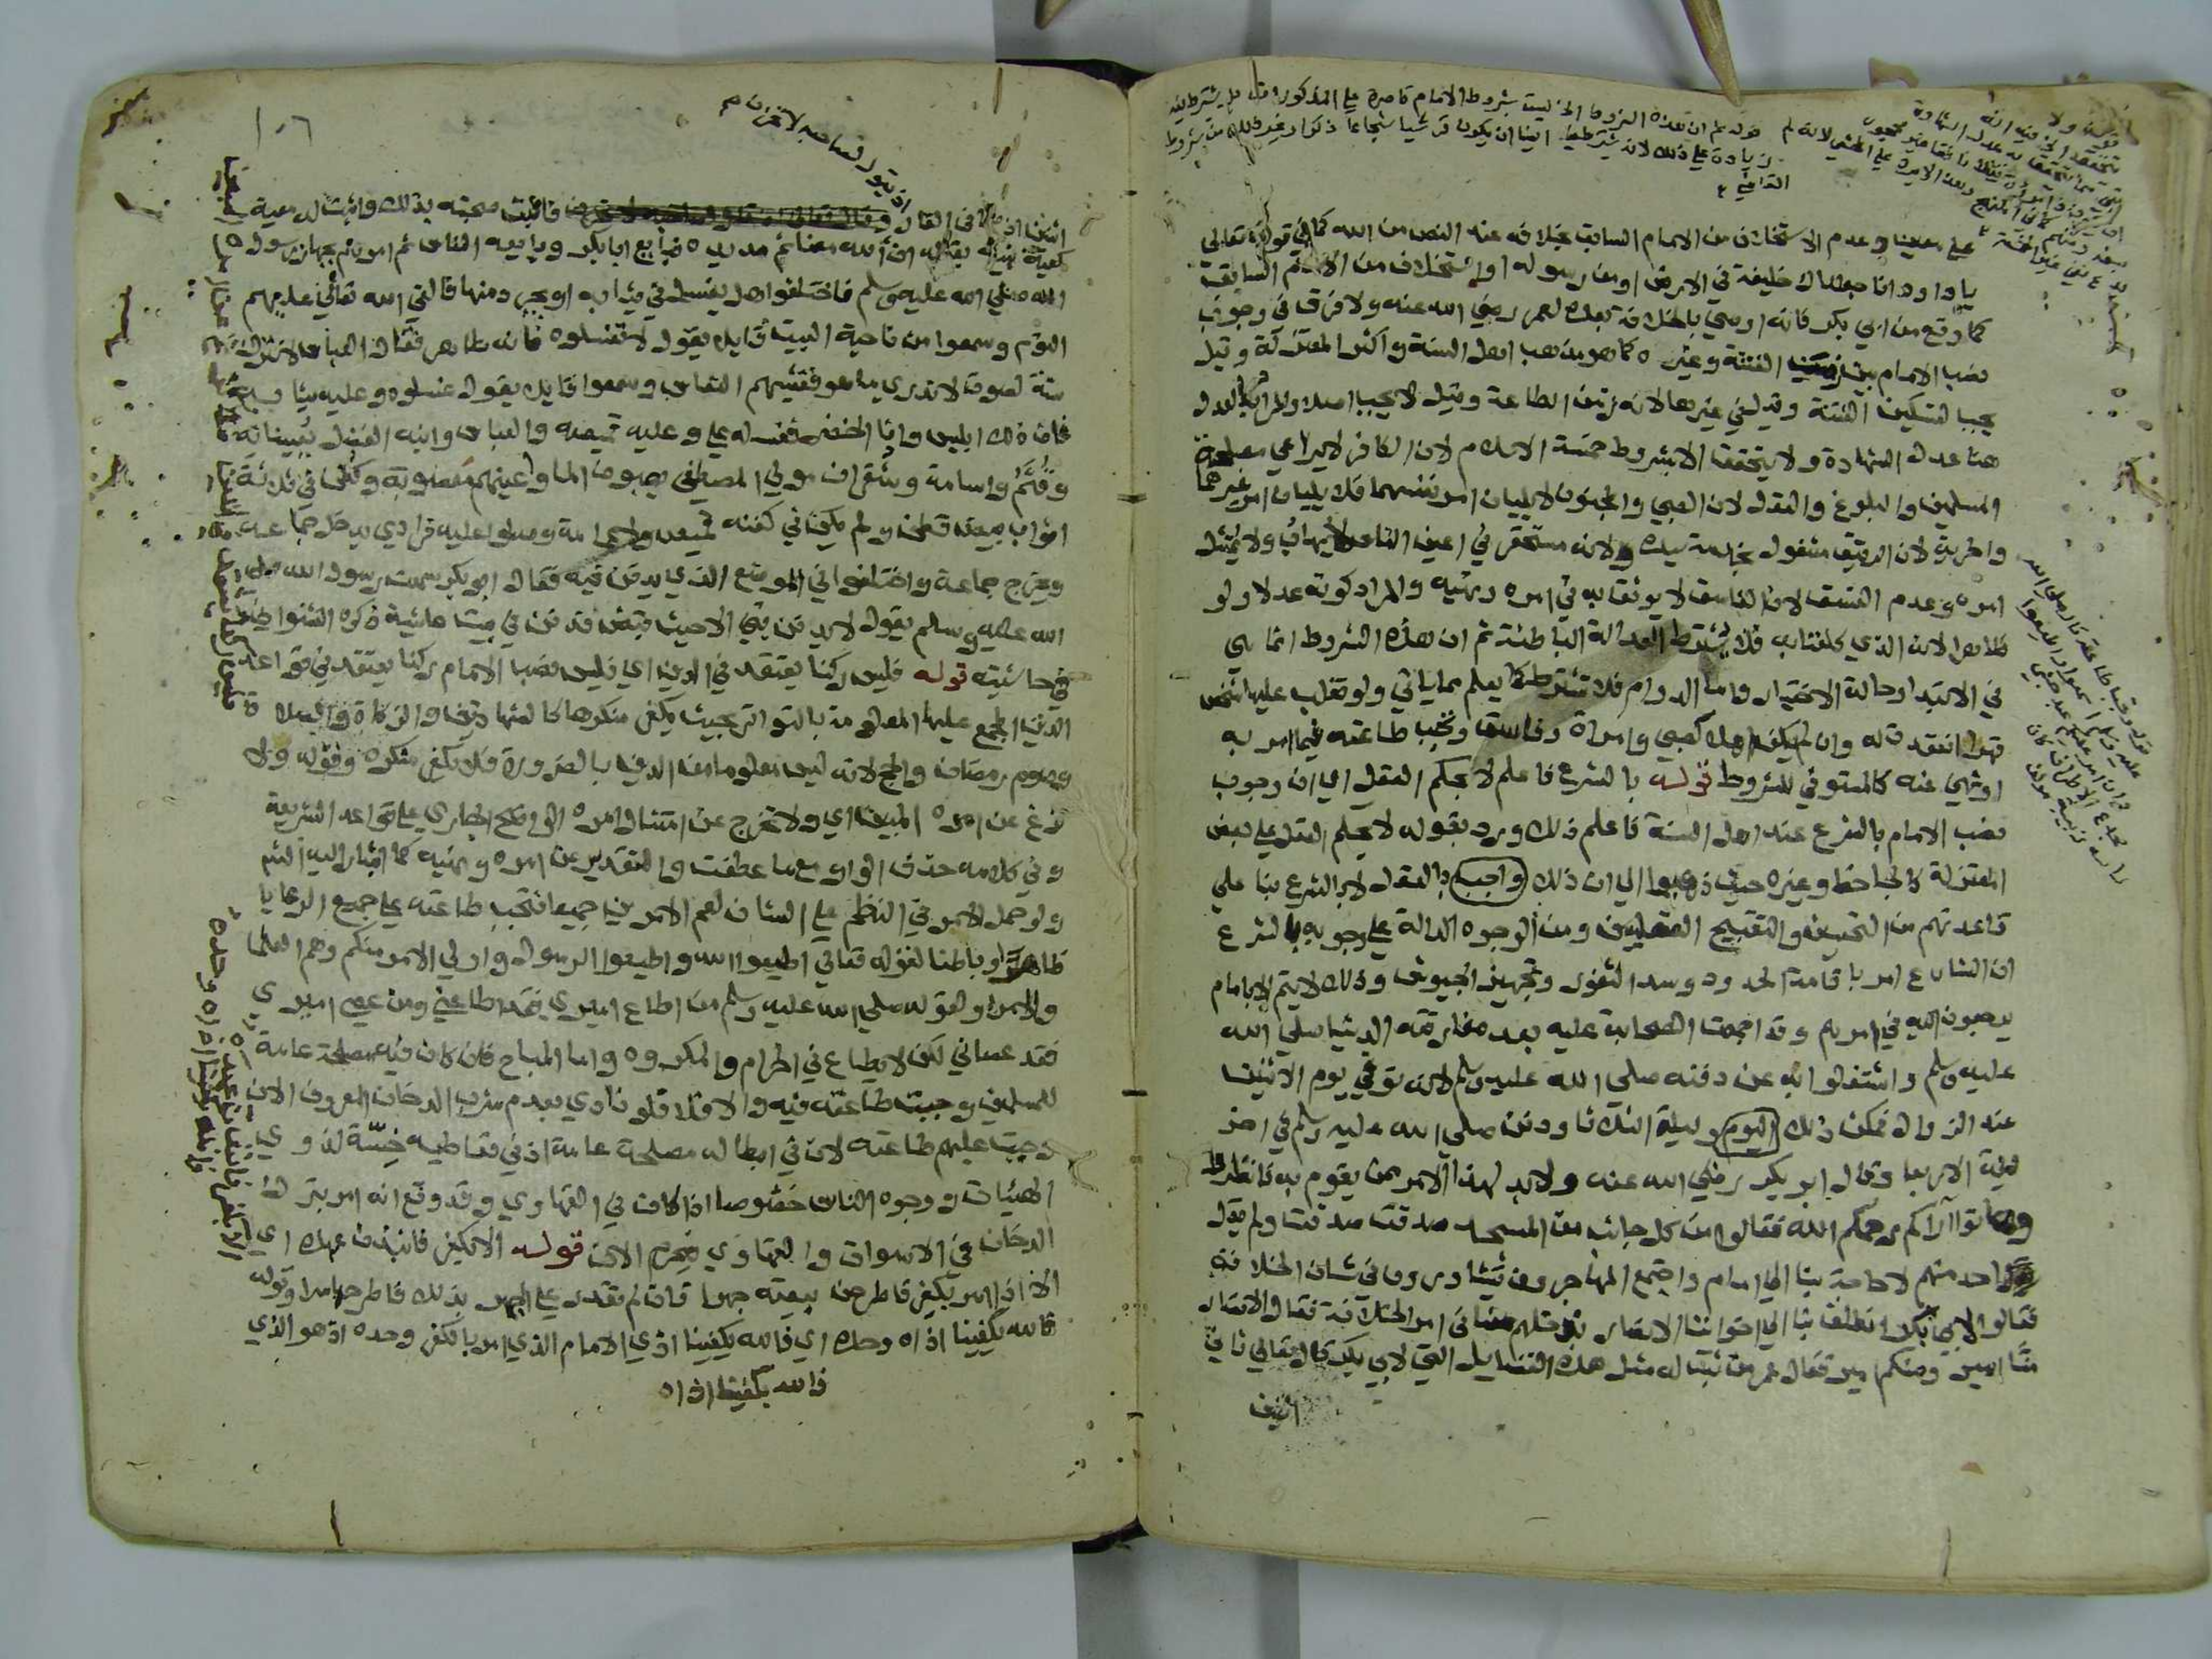 على معينا وعدم الاستخلاف من الامام السابق بخلافه عند النص من الله كما في قوله تعالى
يا داود انا جعلناك خليفة في الارض او من رسوله او استخلاف من الامام السابق
كما وقع من ابي بكر فانه اوصي بالخلافة بعده لعمر رضي الله عنه ولا فرق في وجوب
نصب الامام بين زمن الفتنة وغيره كما هو مذهب اهل السنة واكثر المعتزلة وقيل
يجب لتسكين الفتنة وقيل في غيرها لانه زمن الطاعة وقيل لا يجب اصلا والمراد بالعدل
هنا عدل الشهادة ولا يتحقق الا بشروط خمسة الاسلام لان الكافر لا يراعي مصلحة
المسلمين والبلوغ والعقل لان الصبي والمجنون لا يليان امر نفسهما فلا يليان امر غيرهما
والحرية لان الرقيق مشغول بخدمة سيده ولانه مستحقر في اعين الناس لا يهاب ولا يمتثل
امره وعدم الفسق لان الفاسق لا يوثق به في امره ونهيه والمراد كونه عدلا ولو
ظاهرا لانه الذي كلفنا به فلا يشترط العدالة الباطنة ثم ان هذه الشروط انما هي
في الابتدا وحالة الاختيار واما الدوام فلا تشترط كما يعلم مما ياتي ولو تغلب عليها شخص
قهرا انعقدت له وان لم يكن اهلا كصبي وامراة وفاسق وتجب طاعته فيما امر به
او نهي عنه كالمستوفي للشروط قوله بالشرع فاعلم لا بحكم العقل اي ان وجوب
نصب الامام بالشرع عند اهل السنة فاعلم ذلك ورد بقوله لا بحكم العقل على بعض
المعتزلة كالجاحظ وغيره حيث ذهبوا الي ان ذلك واجب بالعقل لا بالشرع بنا على
قاعدتهم من التحسين والتقبيح العقليين ومن الوجوه الدالة على وجوبه بالشرع
ان الشارع امر باقامة الحدود وسد الثغور وتجهيز الجيوش وذلك لا يتم الا بامام
يرجعون اليه في امورهم وقد اجمعت الصحابة عليه بعد مفارقته الدنيا صلي الله
عليه وسلم واشتغلوا به عن دفنه صلي الله عليه وسلم لانه توفي يوم الاثنين
عند الزوال فمكث ذلك اليوم وليلة الثلاثا ودفن صلي الله عليه وسلم في اخر
ليلة الاربعا وقال ابو بكر رضي الله عنه ولابد لهذا الامر ممن يقوم به فانظروا
وهاتوا آراكم رحمكم الله فقالوا من كل جانب من المسجد صدقت صدقت ولم يقل
احد منهم لا حاجة بنا الي امام واجتمع المهاجرون يتشاورون في شان الخلافة
فقالوا لابي بكر انطلق بنا الي اخواننا الانصار ندخلهم معنا في امر الخلافة فقال الانصار
منا امير ومنكم امير فقال عمر من ثبت له مثل هذه الفضايل التي لابي بكر قال تعالي ثاني
اثنين
١٠٦
اثنين اذ هما في الغار فاثبت صحبته بذلك واثبت له معية
كمعية نبيه بقوله ان الله معنا ثم مد يده فبايع ابا بكر وبايعه الناس ثم امرهم بجهاز رسول
الله صلي الله عليه وسلم فاختلفوا هل يغسل في ثيابه او يجرد منها فالقي الله تعالي عليهم
النوم وسمعوا من ناحية البيت قايل يقول لا تغسلوه فانه طاهر فقال العباس لا نترك
سنة لصوت لا ندري ما هو فغشيهم النعاس وسمعوا قايل يقول غسلوه وعليه ثيابه
فان ذلك ابليس وانا الخضر فغسله علي وعليه قميصه والعباس وابنه الفضل يعينانه
وقثم واسامة وشقران مولي المصطفي يصبون الما واعينهم معصوبة وكفن في ثلاثة
اثواب بيض قطن ولم يكن في كفنه قميص ولا عمامة وصلوا عليه فرادي يدخل جماعة
ويخرج جماعة واختلفوا في الموضع الذي يدفن فيه فقال ابو بكر سمعت رسول الله صلي
الله عليه وسلم يقول لا يدفن نبي الا حيث قبض فدفن في بيت عائشة ذكره الشنواني
في حاشيته قوله فليس ركنا يعتقد في الدين اي فليس نصب الامام ركنا يعتقد في قواعد
الدين المجمع عليها المعلومة بالتواتر بحيث يكفر منكرها كالشهادتين والزكاة والصلاة
وصوم رمضان والحج لانه ليس معلوما من الدين بالضرورة فلا يكفر منكره وقوله ولا
تزغ عن امره المبين اي ولا تخرج عن امتثال امره الواضح الجاري على قواعد الشريعة
وفي كلامه حذف الواو مع ما عطفت والتقدير عن امره ونهيه كما اشار اليه الشم
ولو حمل الامر في النظم على الشان لعم الامرين جميعا فتجب طاعته على جميع الرعايا
ظاهرا وباطنا لقوله تعالي اطيعوا الله واطيعوا الرسول واولي الامر منكم وهم العلما
والامرا ولقوله صلي الله عليه وسلم من اطاع اميري فقد اطاعني ومن عصي اميري
فقد عصاني لكن لا يطاع في الحرام والمكروه واما المباح فان كان فيه مصلحة عامة
للمسلمين وجبت طاعته فيه والا فلا فلو نادي بعدم شرب الدخان المعروف الان
وجبت عليهم طاعته لان في ابطاله مصلحة عامة اذ في تعاطيه خسة لذوي
الهيئات ووجوه الناس خصوصا اذا كان في القهاوي وقد وقع انه امر بترك
الدخان في الاسواق والقهاوي فيحرم الان قوله الا بكفر فانبذن عهده اي
الا اذا امر بكفر فاطرحن بيعته جهرا فان لم تقدر على الجهر بذلك فاطرحها سرا وقوله
فالله يكفينا اذاه وحده اي فالله يكفينا اذي الامام الذي امر بالكفر وحده اذ هو الذي
فالله يكفينا اذاه